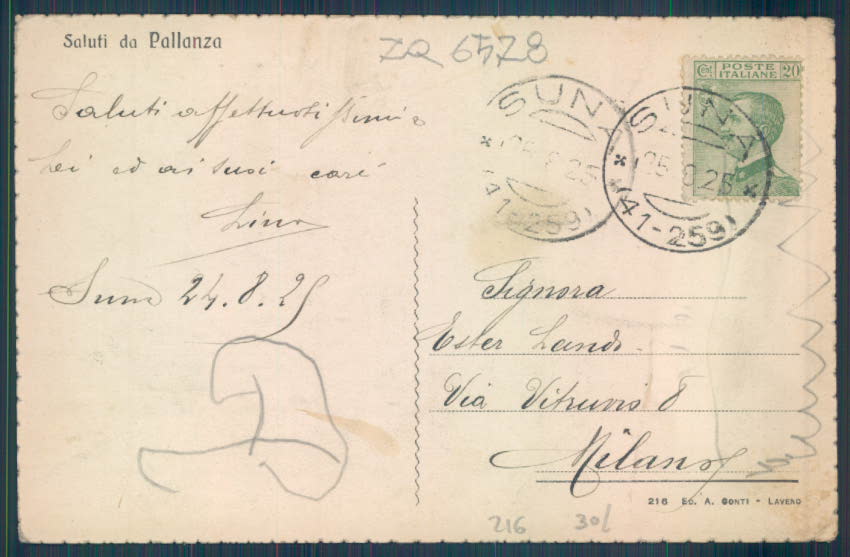 Saluti da Pallanza
ZQ 6578
Saluti affettuosissimi a
Lei ed ai suoi cari
Lino
Suna 24.8.25
SUNA
(41-259)
SUNA
25.8.25
(41-259)
Cent. POSTE ITALIANE 20
Signora
Ester Landi
Via Vitruvio 8
Milano
216 ED. A. CONTI - LAVENO
216 30/